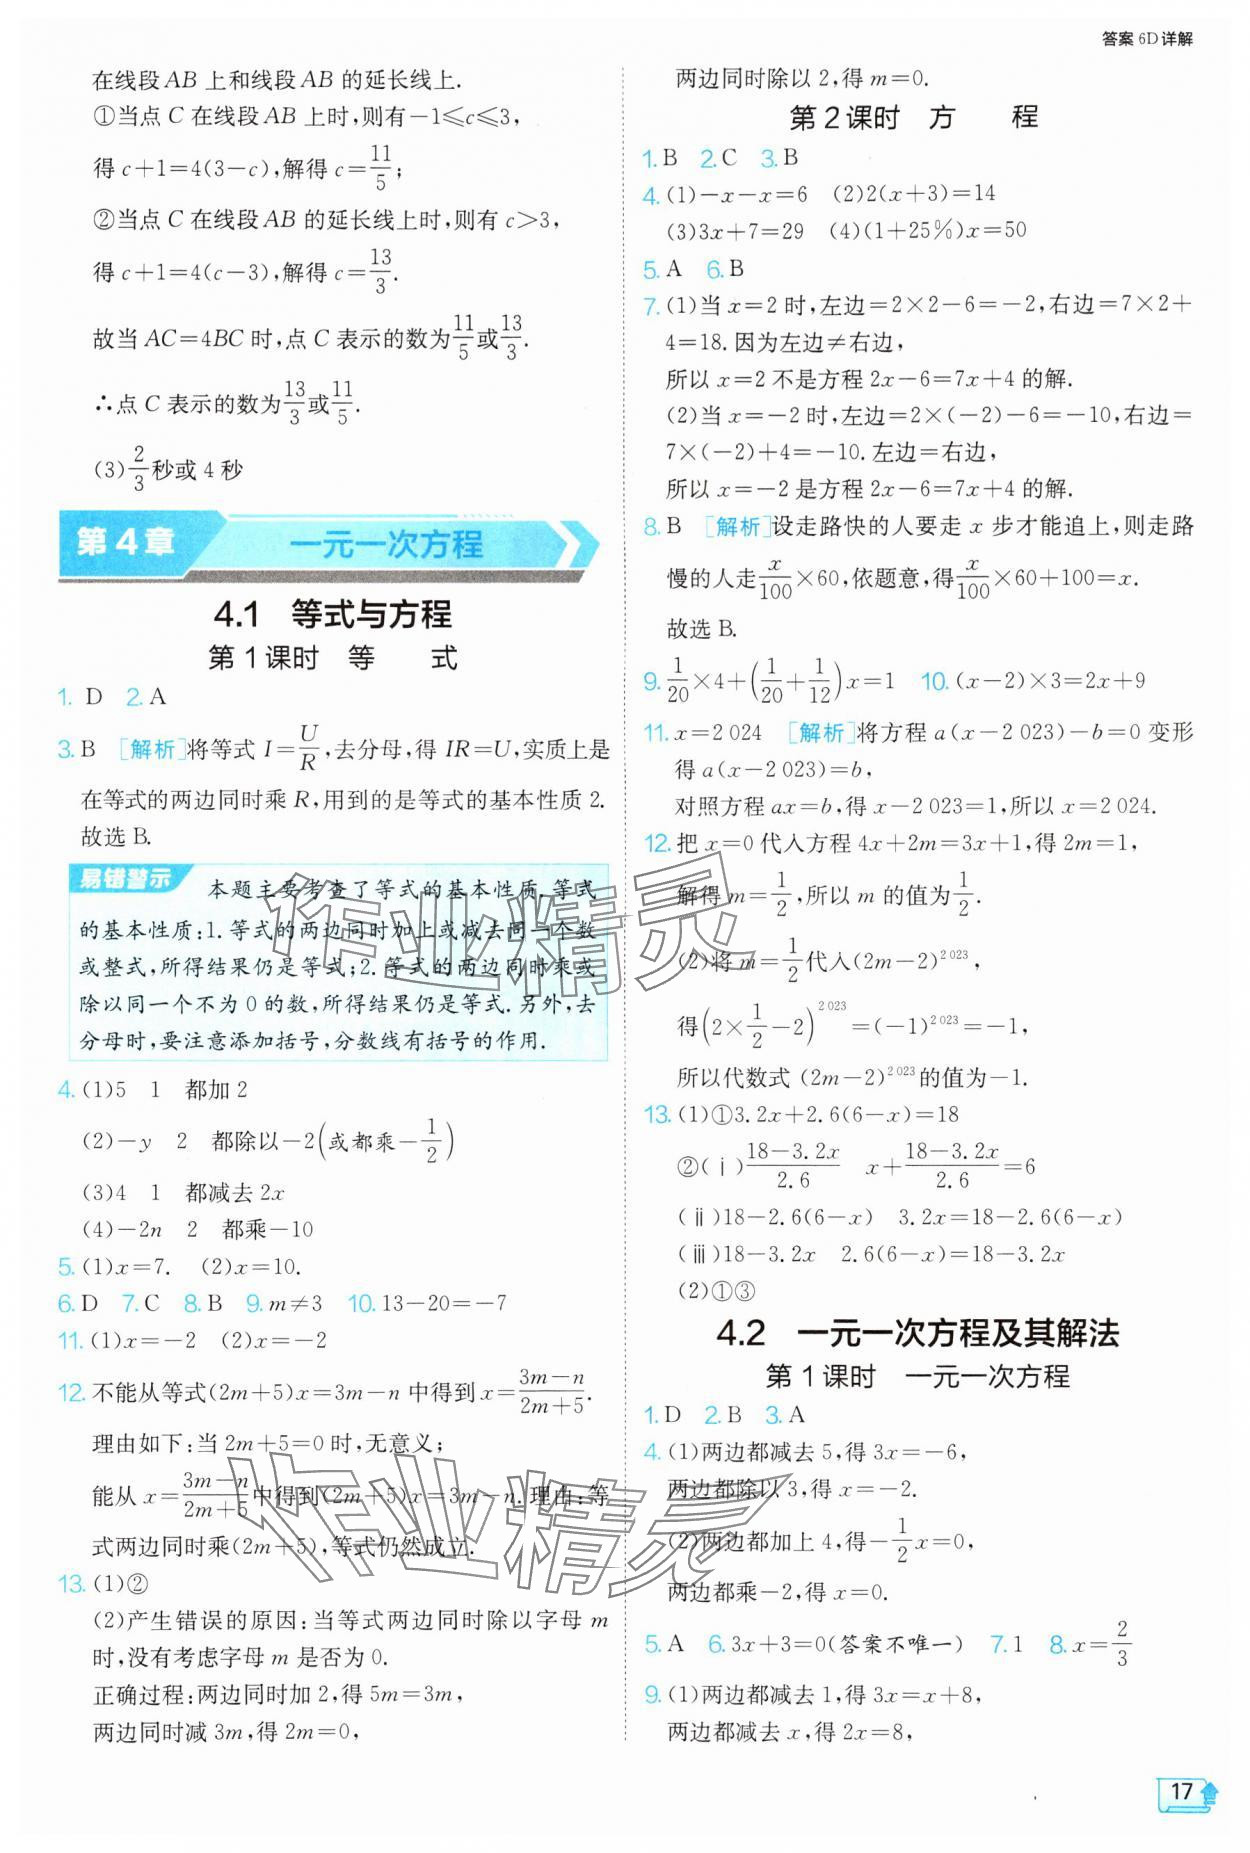 答案 6D 详解
在线段 AB 上和线段 AB 的延长线上.
①当点 C 在线段 AB 上时,则有-1≤c≤3,
得 c+1=4(3-c),解得 c=11/5;
②当点 C 在线段 AB 的延长线上时,则有 c>3,
得 c+1=4(c-3),解得 c=13/3.
故当 AC=4BC 时,点 C 表示的数为11/5或13/3.
∴点 C 表示的数为13/3或11/5.
(3)2/3秒或 4 秒
第4章 一元一次方程
4.1 等式与方程
第1课时 等 式
1. D 2. A
3. B [解析]将等式 I=U/R,去分母,得 IR=U,实质上是
在等式的两边同时乘 R,用到的是等式的基本性质 2.
故选 B.
易错警示 本题主要考查了等式的基本性质.等式
的基本性质:1.等式的两边同时加上或减去同一个数
或整式,所得结果仍是等式;2.等式的两边同时乘或
除以同一个不为 0 的数,所得结果仍是等式.另外,去
分母时,要注意添加括号,分数线有括号的作用.
4. (1)5 1 都加 2
(2)-y 2 都除以-2(或都乘-1/2)
(3)4 1 都减去 2x
(4)-2n 2 都乘-10
5. (1)x=7. (2)x=10.
6. D 7. C 8. B 9. m≠3 10. 13-20=-7
11. (1)x=-2 (2)x=-2
12. 不能从等式(2m+5)x=3m-n 中得到 x=(3m-n)/(2m+5).
理由如下:当 2m+5=0 时,无意义;
能从 x=(3m-n)/(2m+5)中得到(2m+5)x=3m-n.理由:等
式两边同时乘(2m+5),等式仍然成立.
13. (1)②
(2)产生错误的原因:当等式两边同时除以字母 m
时,没有考虑字母 m 是否为 0.
正确过程:两边同时加 2,得 5m=3m,
两边同时减 3m,得 2m=0,
两边同时除以 2,得 m=0.
第2课时 方 程
1. B 2. C 3. B
4. (1)-x-x=6 (2)2(x+3)=14
(3)3x+7=29 (4)(1+25%)x=50
5. A 6. B
7. (1)当 x=2 时,左边=2×2-6=-2,右边=7×2+
4=18.因为左边≠右边,
所以 x=2 不是方程 2x-6=7x+4 的解.
(2)当 x=-2 时,左边=2×(-2)-6=-10,右边=
7×(-2)+4=-10.左边=右边,
所以 x=-2 是方程 2x-6=7x+4 的解.
8. B [解析]设走路快的人要走 x 步才能追上,则走路
慢的人走x/100×60,依题意,得x/100×60+100=x.
故选 B.
9. 1/20×4+(1/20+1/12)x=1 10. (x-2)×3=2x+9
11. x=2 024 [解析]将方程 a(x-2 023)-b=0 变形
得 a(x-2 023)=b,
对照方程 ax=b,得 x-2 023=1,所以 x=2 024.
12. 把 x=0 代入方程 4x+2m=3x+1,得 2m=1,
解得 m=1/2,所以 m 的值为1/2.
(2)将 m=1/2代入(2m-2)^2 023,
得(2×1/2-2)^2 023=(-1)^2 023=-1,
所以代数式 (2m-2)^2 023的值为-1.
13. (1)①3.2x+2.6(6-x)=18
②(ⅰ)(18-3.2x)/2.6 x+(18-3.2x)/2.6=6
(ⅱ)18-2.6(6-x) 3.2x=18-2.6(6-x)
(ⅲ)18-3.2x 2.6(6-x)=18-3.2x
(2)①③
4.2 一元一次方程及其解法
第1课时 一元一次方程
1. D 2. B 3. A
4. (1)两边都减去 5,得 3x=-6,
两边都除以 3,得 x=-2.
(2)两边都加上 4,得-1/2x=0,
两边都乘-2,得 x=0.
5. A 6. 3x+3=0(答案不唯一) 7. 1 8. x=2/3
9. (1)两边都减去 1,得 3x=x+8,
两边都减去 x,得 2x=8,
17
作业精灵
作业精灵